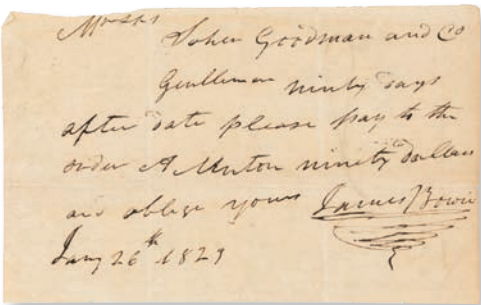 Messrs
John Goodman and Co
Gentlemen ninety days
after date please pay to the
order A Minton ninety dollars
and oblige yours James Bowie
Jany 26th 1829